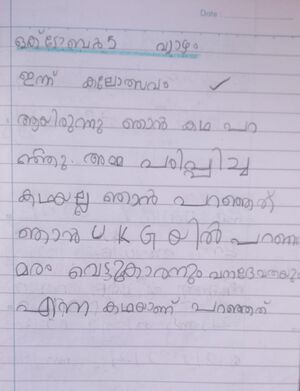 Date :
ഒക്ടോബർ 5 വ്യാഴം
ഇന്ന് കലോത്സവം ✓
ആയിരുന്നു ഞാൻ കഥ പറ
ഞ്ഞു. അമ്മ പഠിപ്പിച്ച
കഥയല്ല ഞാൻ പറഞ്ഞത്
ഞാൻ U K G യിൽ പറഞ്ഞ
മരം വെട്ടുകാരനും വനദേവതയും
എന്ന കഥയാണ് പറഞ്ഞത്